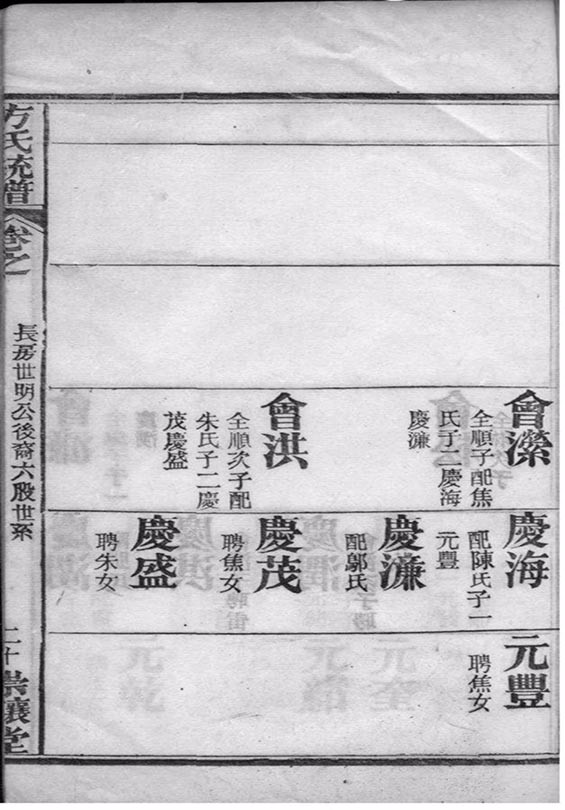 會濚
全順子配焦
氏子二慶海
慶濂
會洪
全順次子配
朱氏子二慶
茂慶盛
慶海
配陳氏子一
元豐
慶濂
配鄔氏
慶茂
聘焦女
慶盛
聘朱女
元豐
聘焦女
方氏統譜
卷之
長房世明公後裔六股世系
二十
崇讓堂